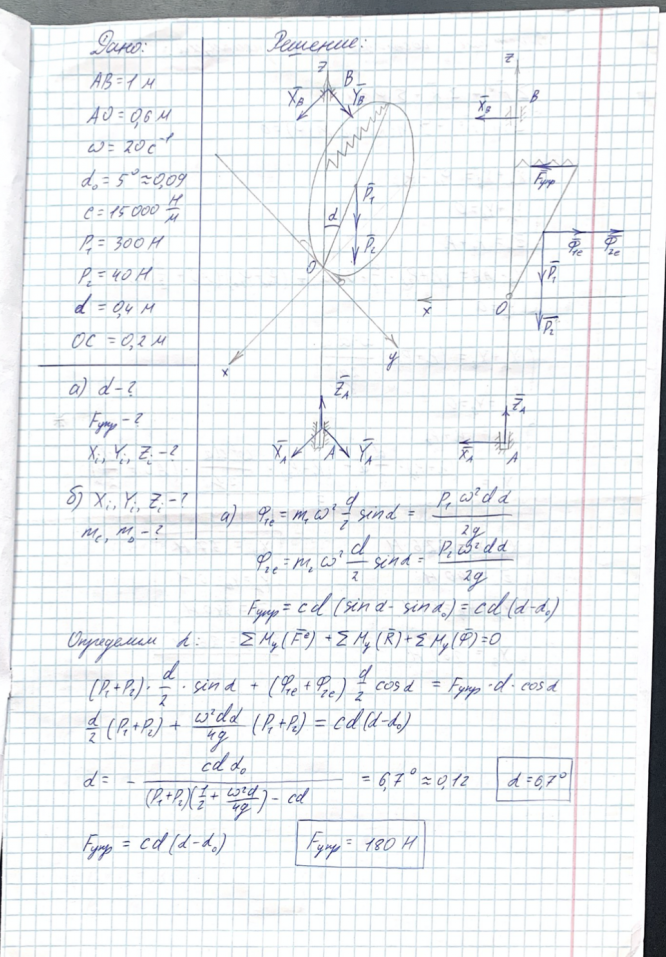 Дано:
AB = 1 м
AO = 0,6 м
ω = 20 с⁻¹
α₀ = 5° ≈ 0,09
c = 15000 Н/м
P₁ = 300 Н
P₂ = 40 Н
d = 0,4 м
OC = 0,2 м
а) α - ?
Fупр - ?
Xᵢ, Yᵢ, Zᵢ - ?
б) Xᵢ, Yᵢ, Zᵢ - ?
Решение:
z
B
X̄_B
Ȳ_B
α
P̄₁
P̄₂
O
x
y
Z̄_A
X̄_A
A
Ȳ_A
z
X̄_B
B
F̄упр
Φ̄₁e
Φ̄₂e
P̄₁
x
O
P̄₂
Z̄_A
X̄_A
A
а) Φ₁e = m₁ω² d/2 sinα = P₁ω²dα/2g
Φ₂e = m₂ω² d/2 sinα = P₂ω²dα/2g
Fупр = cd(sinα - sinα₀) = cd(α-α₀)
Определим α: ΣM_y(F̄ᵉ) + ΣM_y(R̄) + ΣM_y(Φ̄) = 0
(P₁+P₂) · d/2 · sinα + (Φ₁e + Φ₂e) d/2 cosα = Fупр · d · cosα
α/2 (P₁+P₂) + ω²dα/4g (P₁+P₂) = cd(α-α₀)
α = - cdα₀/((P₁+P₂)(1/2 + ω²d/4g) - cd) = 6,7° ≈ 0,12 α = 6,7°
Fупр = cd(α-α₀) Fупр = 180 Н